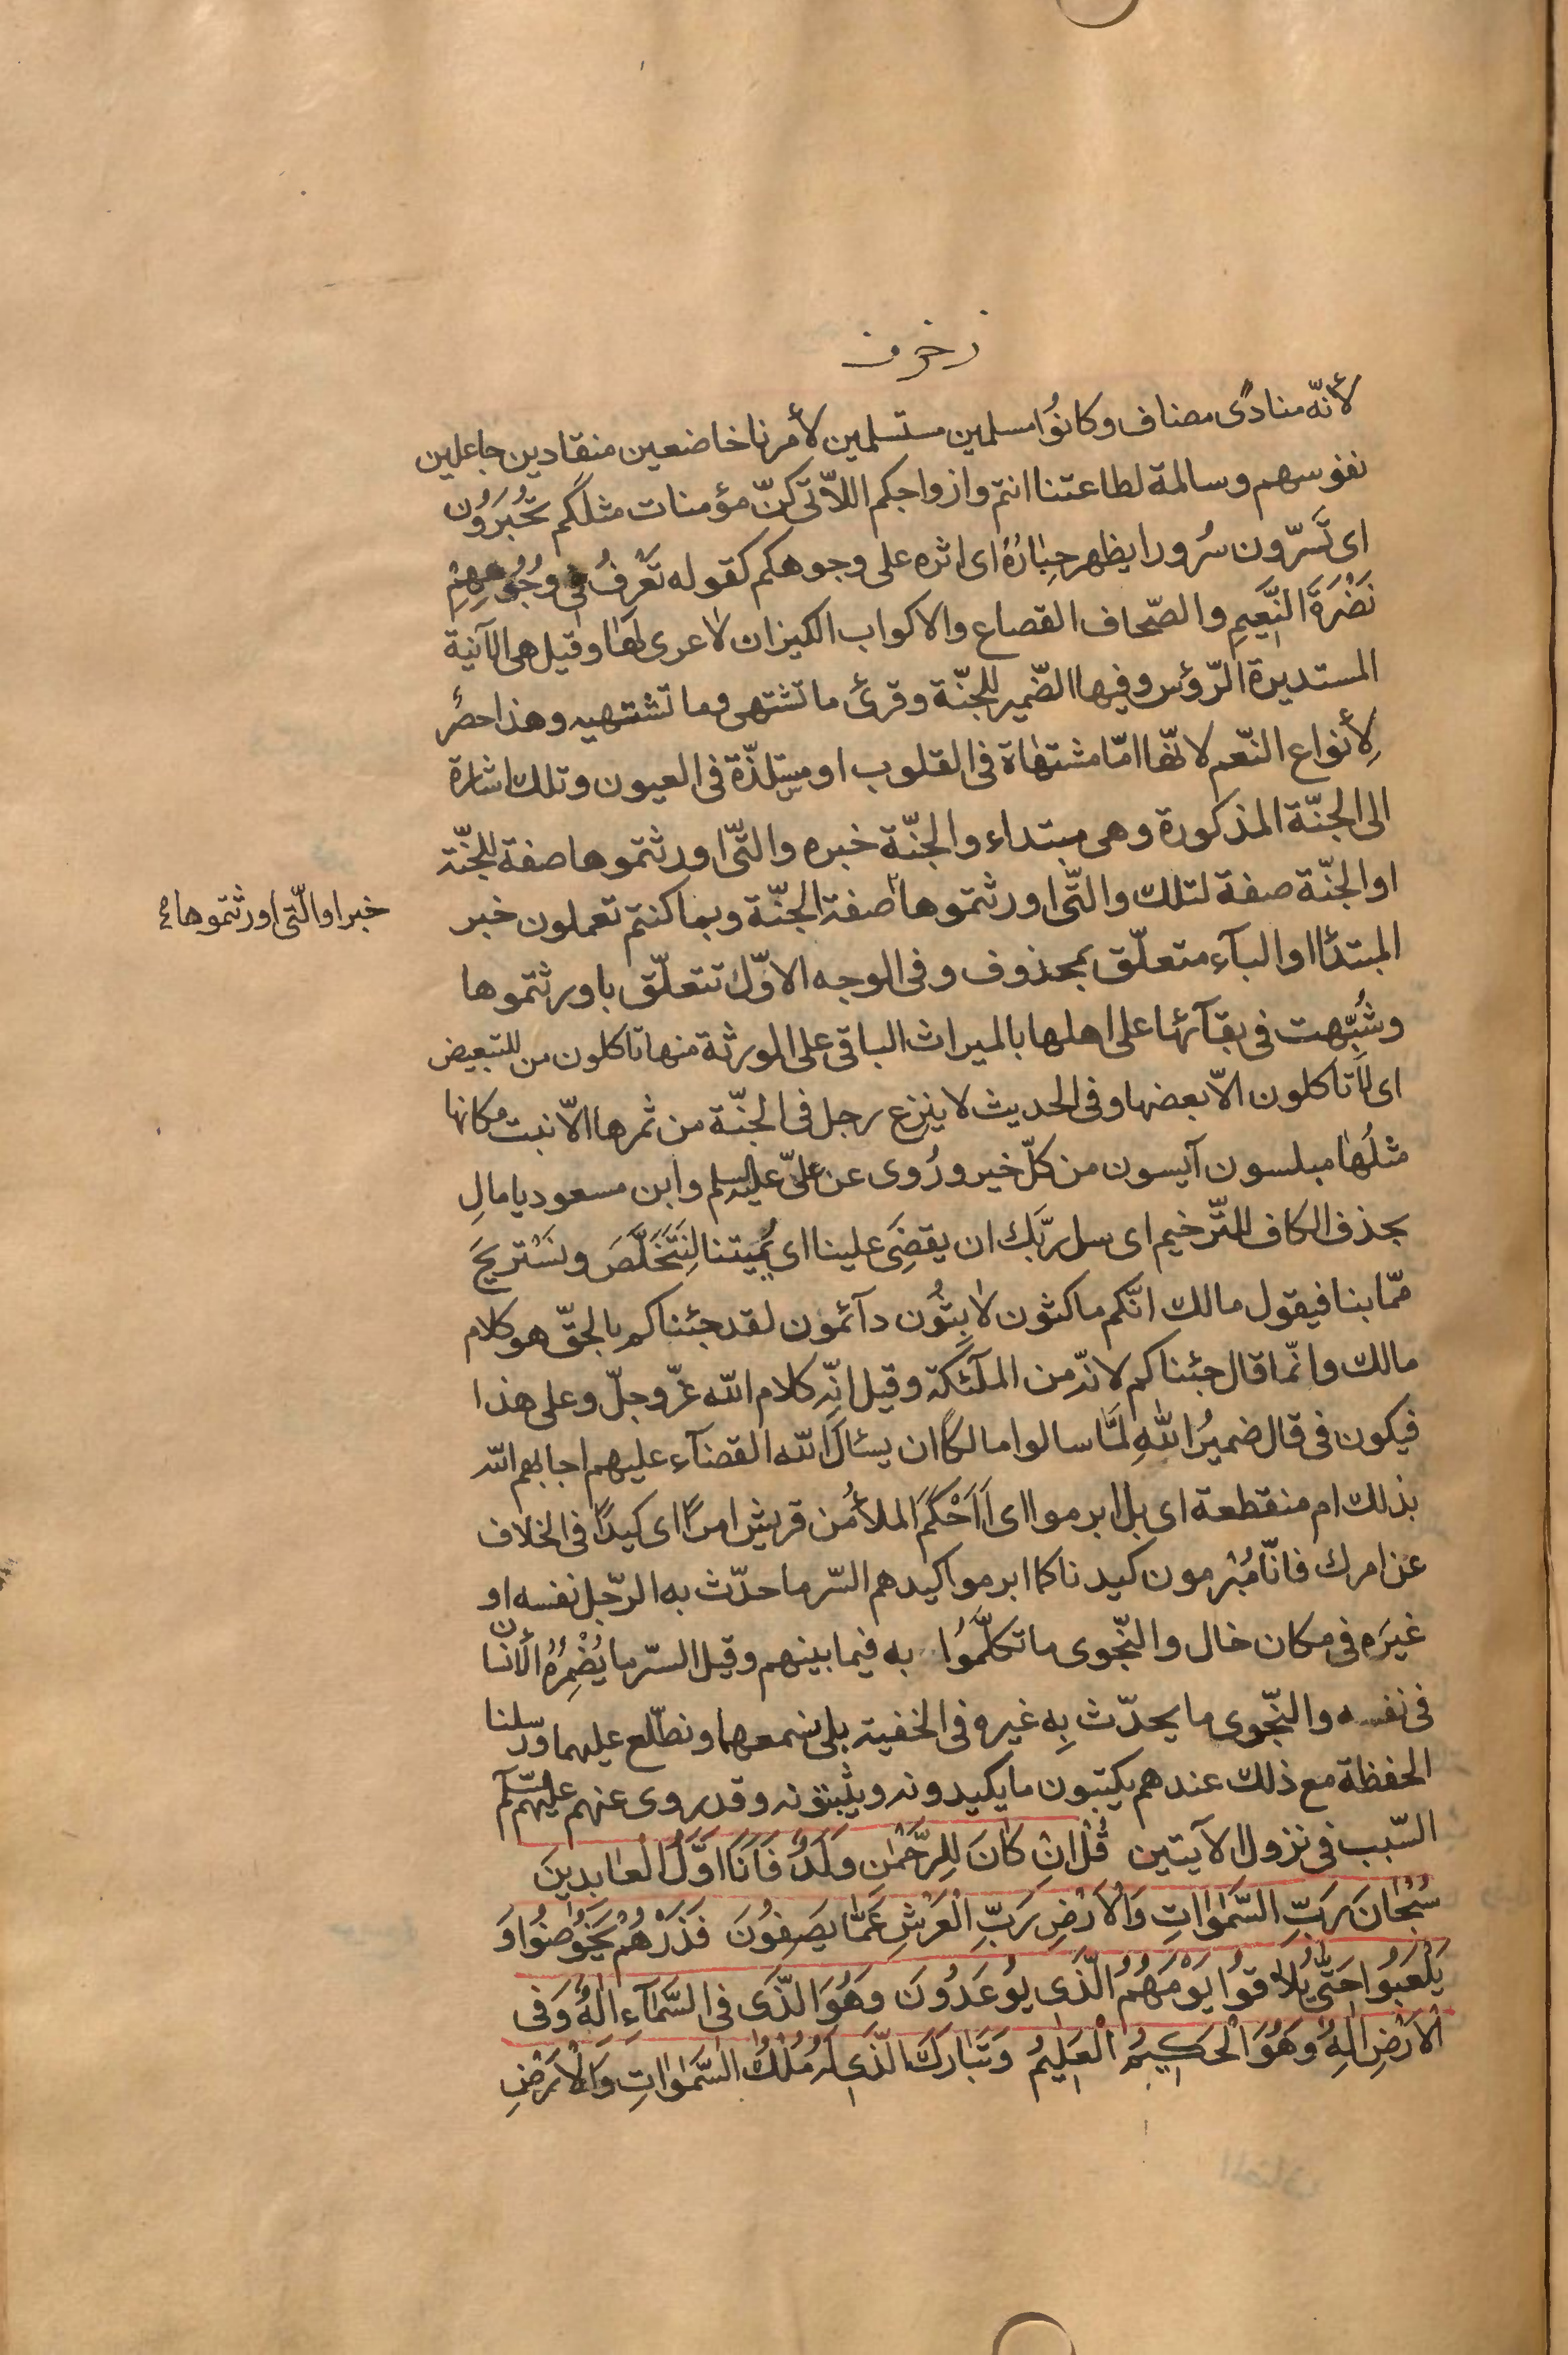 زخرف
لأنّه منادًى مضاف وكانوُا مسلمين مستسلمين لأمرنا خاضعين منقادين جاعلين
نفوسهم وسالمة لطاعتنا انتم وازواجكم اللاّتى كنّ مؤمنات مثلكم تُحْبَرُون
اى تَسرّون سُرورا يظهر حِبٰارُهُ اى اثره على وجوهكم كقوله تَعْرِفُ فى وُجُوهِهِمْ
نَضْرَةَ النَّعيمِ والصّحاف القصاع والاكواب الكيزان لاٰ عرى لهٰا وقيل هى الآنية
المستديرة الرّؤس وفيها الضّمير للجنّة وقرئ ما تشتهى وما تشتهيه وهذا حصرٌ
لِأنواع النّعم لانّها امّا مشتهٰاة فى القلوب او مستلذّة فى العيون وتلك اشارة
الى الجنّة المذكورة وهى مبتداء والجنّة خبره والتّى اورثتموها صفة للجنّة
او الجنّة صفة لتلك والتّى اورثتموها صفة الجنّة وبما كنتم تعملون خبر
خبر او الّتى اورثتموها
المبتدٔا او البآء متعلّق بمحذوف وفى الوجه الاوّل تتعلّق باورثتموها
وشُبّهت فى بقآئها على اهلها بالميراث الباقى على الورثة منها تاكلون من للتبعيض
اى لاٰ تاكلون الاّ بعضها وفى الحديث لا ينزع رجل فى الجنّة من ثمرها الاّ نبت مكانها
مثلُهٰا مبلسون آيسون من كلّ خير ورُوى عن علىّ عليه السلم وابن مسعود يا مالِ
بحذف الكاف للتّرخيم اى سل ربَّك ان يقضِىَ علينا اى يُميتنا لِنَتَخَلَّصَ ونَسْتريحَ
ممّا بنا فيقول مالك انّكم ماكثون لاٰبِثُون دآئمون لقد جئناكم بالحقّ هو كلام
مالك وانّما قال جئناكم لانّه من الملآئكة وقيل انّه كلام الله عزّ وجلّ وعلى هذا
فيكون فى قال ضميرُ اللهِ لمّا سالوا مالكًا ان يسئال الله القضآء عليهم اجابهم الله
بذلك ام منقطعة اى بل ابرموا اى أَاَحْكَمَ الملأُ من قريش امرًا اى كيدًا فى الخلاف
عن امرك فانّا مُبْرمون كيدنا كما ابرموا كيدهم السّر ما حدّث به الرّجل نفسه او
غيرَه فى مكان خال والنّجوى ما تكلَّموُا به فيما بينهم وقيل السّر ما يُضْمِرُهُ الأنسان
فى نفسه والنّجوى ما يحدّث بِه غيره فى الخفية بلى نسمعهما ونطّلع عليهما ورسلنا
الحفظة مع ذلك عندهم يكتبون ما يكيدونه ويثبتونه وقد روى عنهم عليهم السّلم
السّبب فى نزول الآيتين قُلْ اِنْ كٰانَ لِلرَّحْمٰنِ وَلَدٌ فَاَنَا اَوَّلُ الْعٰابِدينَ
سُبْحٰانَ رَبِّ السَّمٰوٰاتِ وَالْاَرْضِ رَبِّ الْعَرْشِ عَمّٰا يَصِفُونَ فَذَرْهُمْ يَخُوضُوا وَ
يَلْعَبُوا حَتّٰى يُلاٰقُوا يَوْمَهُمُ الَّذى يُوعَدُونَ وَهُوَ الَّذى فِى السَّمٰآءِ اِلٰهٌ وَفى
الْاَرْضِ اِلٰهٌ وَهُوَ الْحَكيمُ الْعَليمُ وَتَبٰارَكَ الَّذى لَهُ مُلْكُ السَّمٰوٰاتِ وَالْاَرْضِ